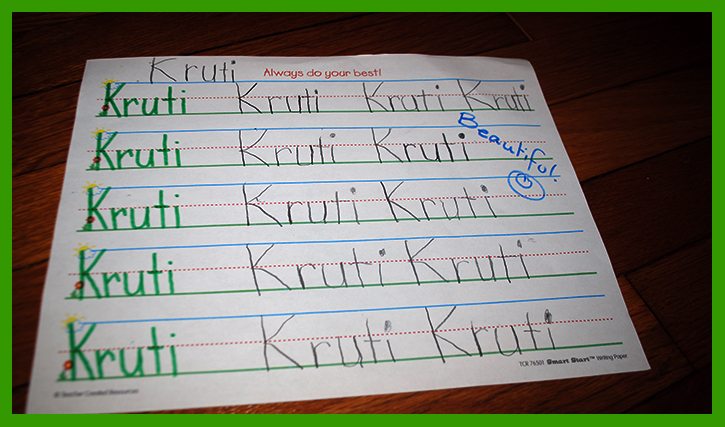 Kruti Always do your best!
Kruti Kruti Kruti Kruti
Kruti Kruti Kruti
Beautiful!
Kruti Kruti Kruti
Kruti Kruti Kruti
Kruti Kruti Kruti
© Teacher Created Resources TCR 76501 Smart Start™ Writing Paper